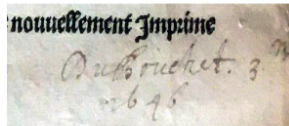 nouuellement Imprime
Du Bouchet. 3
1646